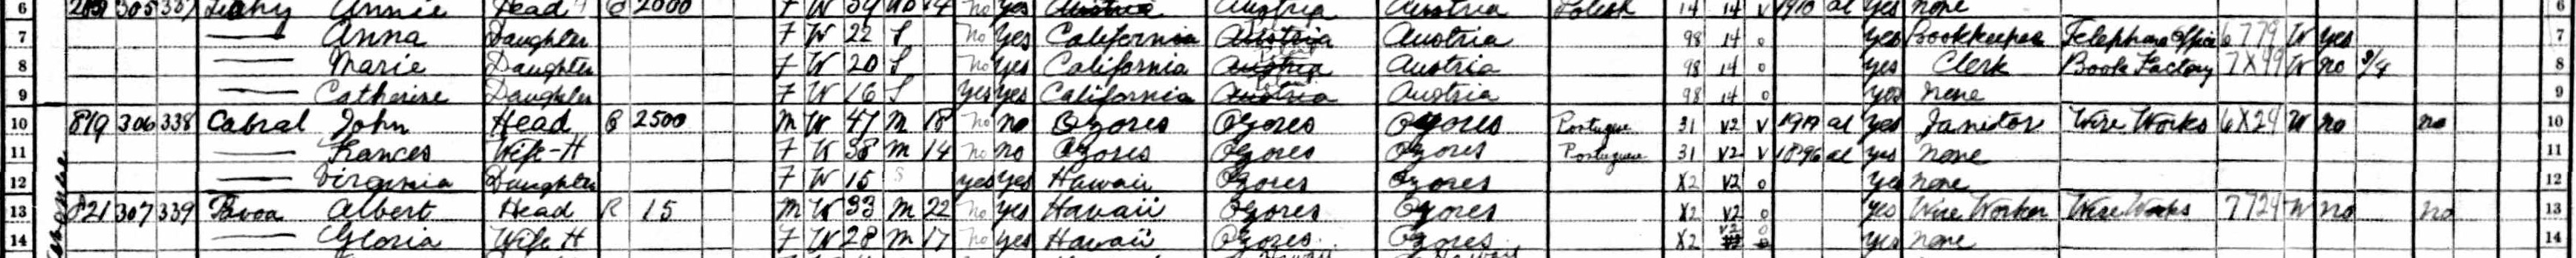 6 305 Annie Head 2000 F W No yes Austria Austria Austria Polish 14 14 V 1910 al yes none 6
7 Anna Daughter F W 22 S No Yes California Austria Austria 98 14 0 yes Bookkeeper Telephone Office 6779 W yes 7
8 Marie Daughter F W 20 S No yes California Austria Austria 98 14 0 yes Clerk Book Factory 7X99 W no 3/4 8
9 Catherine Daughter F W 16 S Yes yes California Austria Austria 98 14 0 yes none 9
10 819 306 338 Cabral John Head 2500 M W 47 M 18 No no Azores Azores Azores Portugue 31 V2 V al yes Janitor Wire Works 6X24 W no no 10
11 Frances Wife-H F W 38 M 14 No no Azores Azores Azores Portuguese 31 V2 V 1896 al yes none 11
12 Virginia Daughter F W 15 S yes yes Hawaii Azores Azores X2 V2 0 yes none 12
13 821 307 339 Albert Head R 15 M W 33 M 22 No yes Hawaii Azores Azores X2 V2 0 yes Wire Worker Wire Works 7724 W no no 13
14 Gloria Wife H F W 28 M 17 No yes Hawaii Azores Azores X2 V2 0 yes none 14